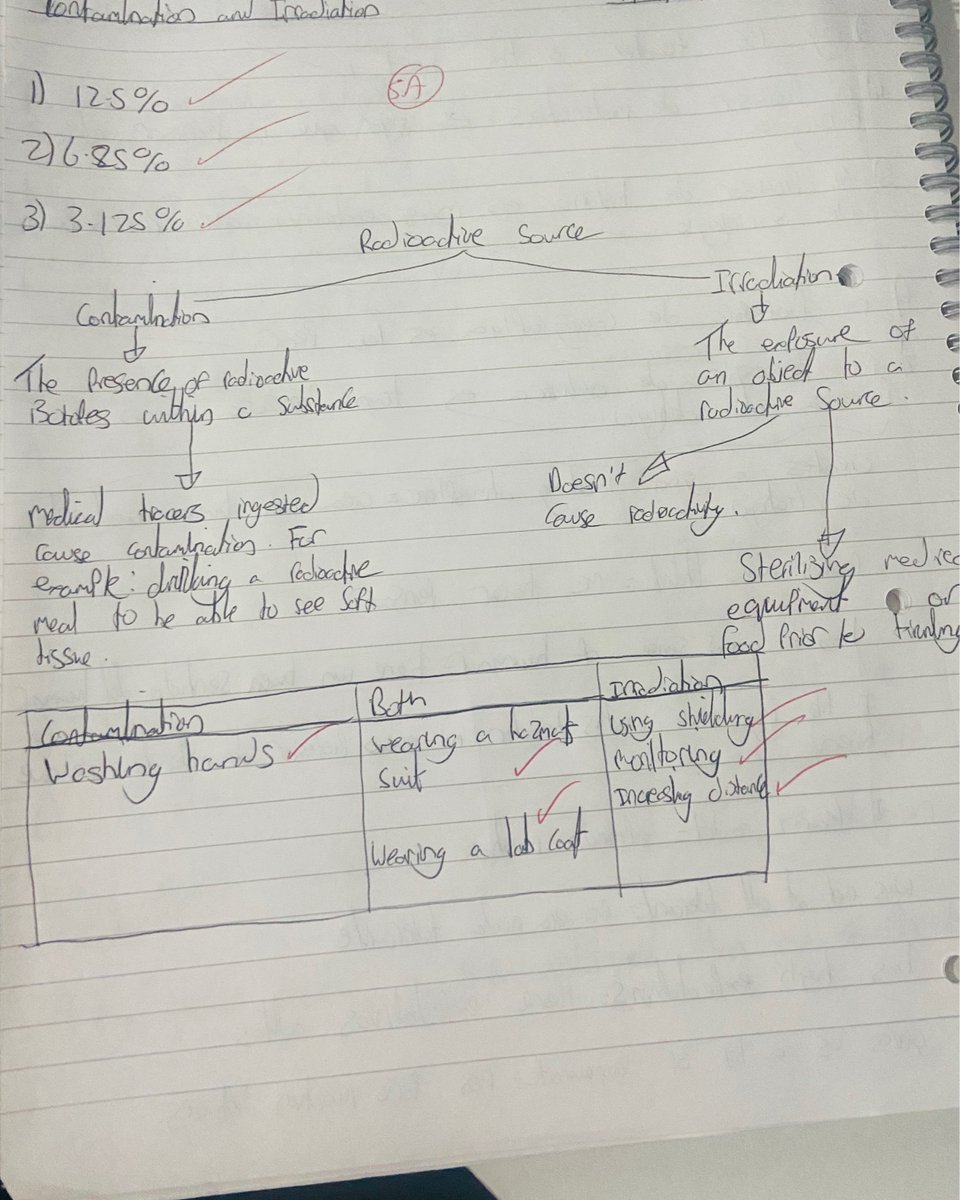 Contamination and Irradiation
1) 12.5%
5A
2) 6.25%
3) 3.125%
Radioactive Source
Contamination
Irradiation
The Presence of radioactive
within a substance
The exposure of
an object to a
radioactive Source.
Medical tracers ingested
cause contamination. For
example: drinking a radioactive
meal to be able to see Soft
tissue.
Doesn't
cause radioactivity.
Sterilizing medica
equipment or
food Prior to
Contamination
Both
Irradiation
Washing hands
wearing a hazmat
suit
Wearing a lab coat
Using shielding
Monitoring
Increasing distance